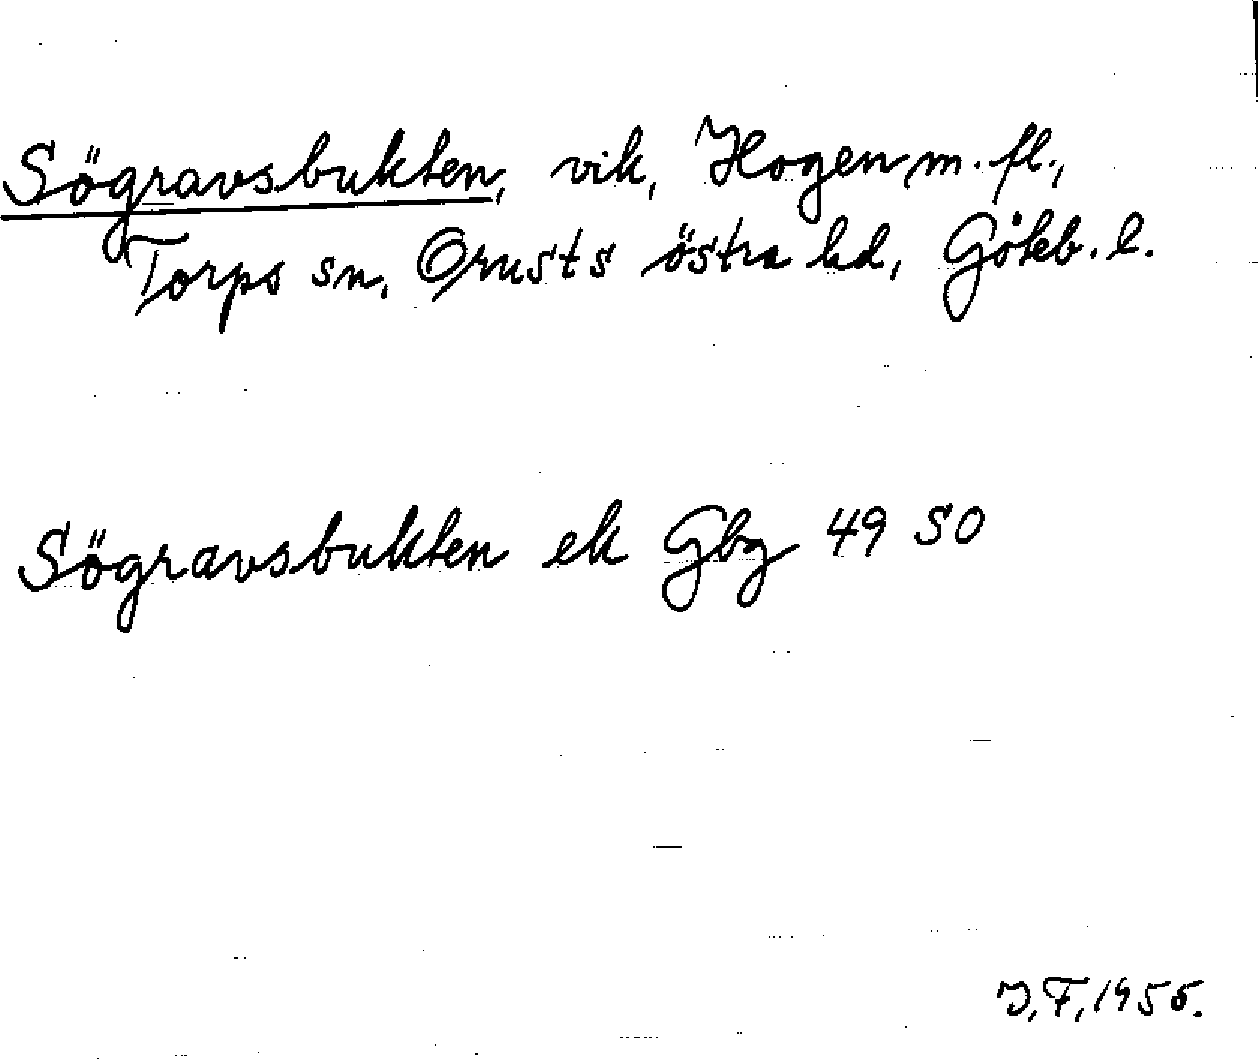 Sögravsbukten, vik, Hogen m. fl.,
Torps sn, Orusts östra hd, Göteb. l.
Sögravsbukten ek Gbg 49 SO
J. F. 1955.